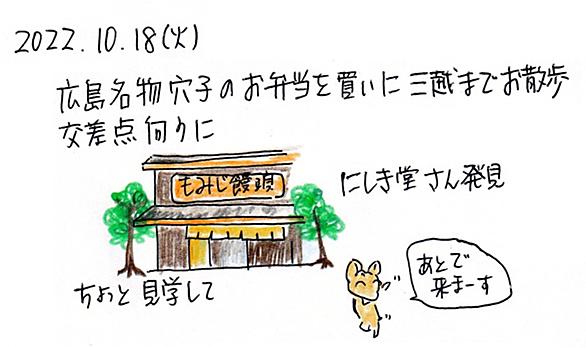 2022.10.18(火)
広島名物穴子のお弁当を買いに三越までお散歩
交差点向うに
もみじ饅頭
にしき堂さん発見
ちょっと見学して
あとで
来まーす